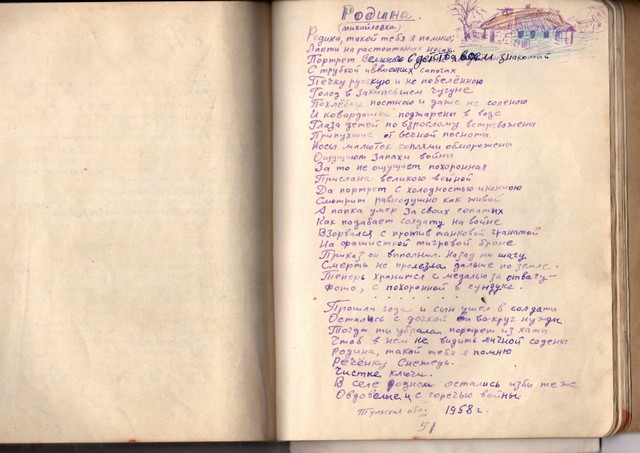 Родина.
(Михайловка)
Родина, такой тебя я помню,
Лапти на растоптаных ногах.
Портрет великого в детства всем знакомый
С трубкой и в высших сапогах
Печку русскую и не побелённою
Голод в закипевшем чугуне
Похлёбку постною и даже не соленою
И ковардашка поджарены в воде
Глаза детей по взрослому встревожены
Припухшие от вечной посноты
Носы малюток соплями обморожены
Ощущают запахи войны
За то не ощущает похоронная
Прислана великою войной
Да портрет с холодностью иконною
Смотрит равнодушно как живой
А папка умер за своих сопатых
Как подабает солдату на войне
Взорвался с против танковой гранатой
На фашисткой тигровой броне
Приказ он выполнил. Назад ни шагу
Смерть не пролезла дальше по земле.
Теперь хранится с медалью за отвагу—
Фото, с похоронной в сундуке.
. . . . . . . . .
Прошли года и сын ушел в солдаты
Остались с дочкой вокруг нужды
Тогда ты убрала портрет из хаты
Чтоб в нем не видить личной
Родина, такой тебя я помню
Реченку Снежедь.
Чистые ключи.
В селе родном остались избы те же
Овдовелые с горечью войны
Тульская обл. 1958 г.
51